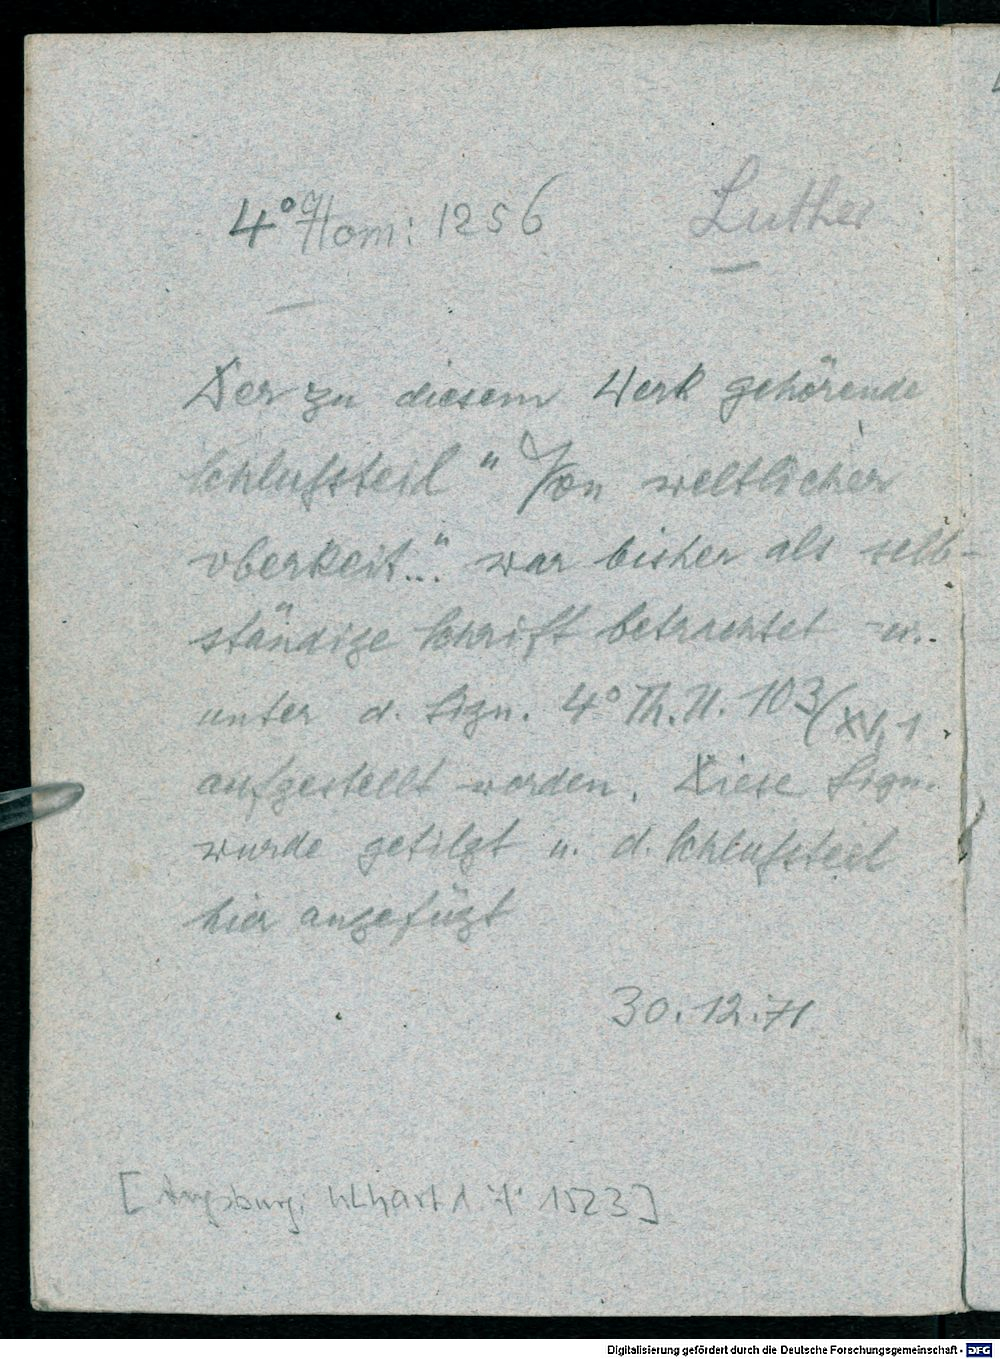 4° Hom: 1256 Luther
Der zu diesem Werk gehörende
Schlußteil "Von weltlicher
oberkeit..." war bisher als selb-
ständige Schrift betrachtet u.
unter d. Sign. 4° Th. U. 103/XV,1
aufgestellt worden. Diese Sign.
wurde getilgt u. d. Schlußteil
hier angefügt
30.12.71
[Augsburg: Ulhart d. Ä. 1523]
Digitalisierung gefördert durch die Deutsche Forschungsgemeinschaft - DFG